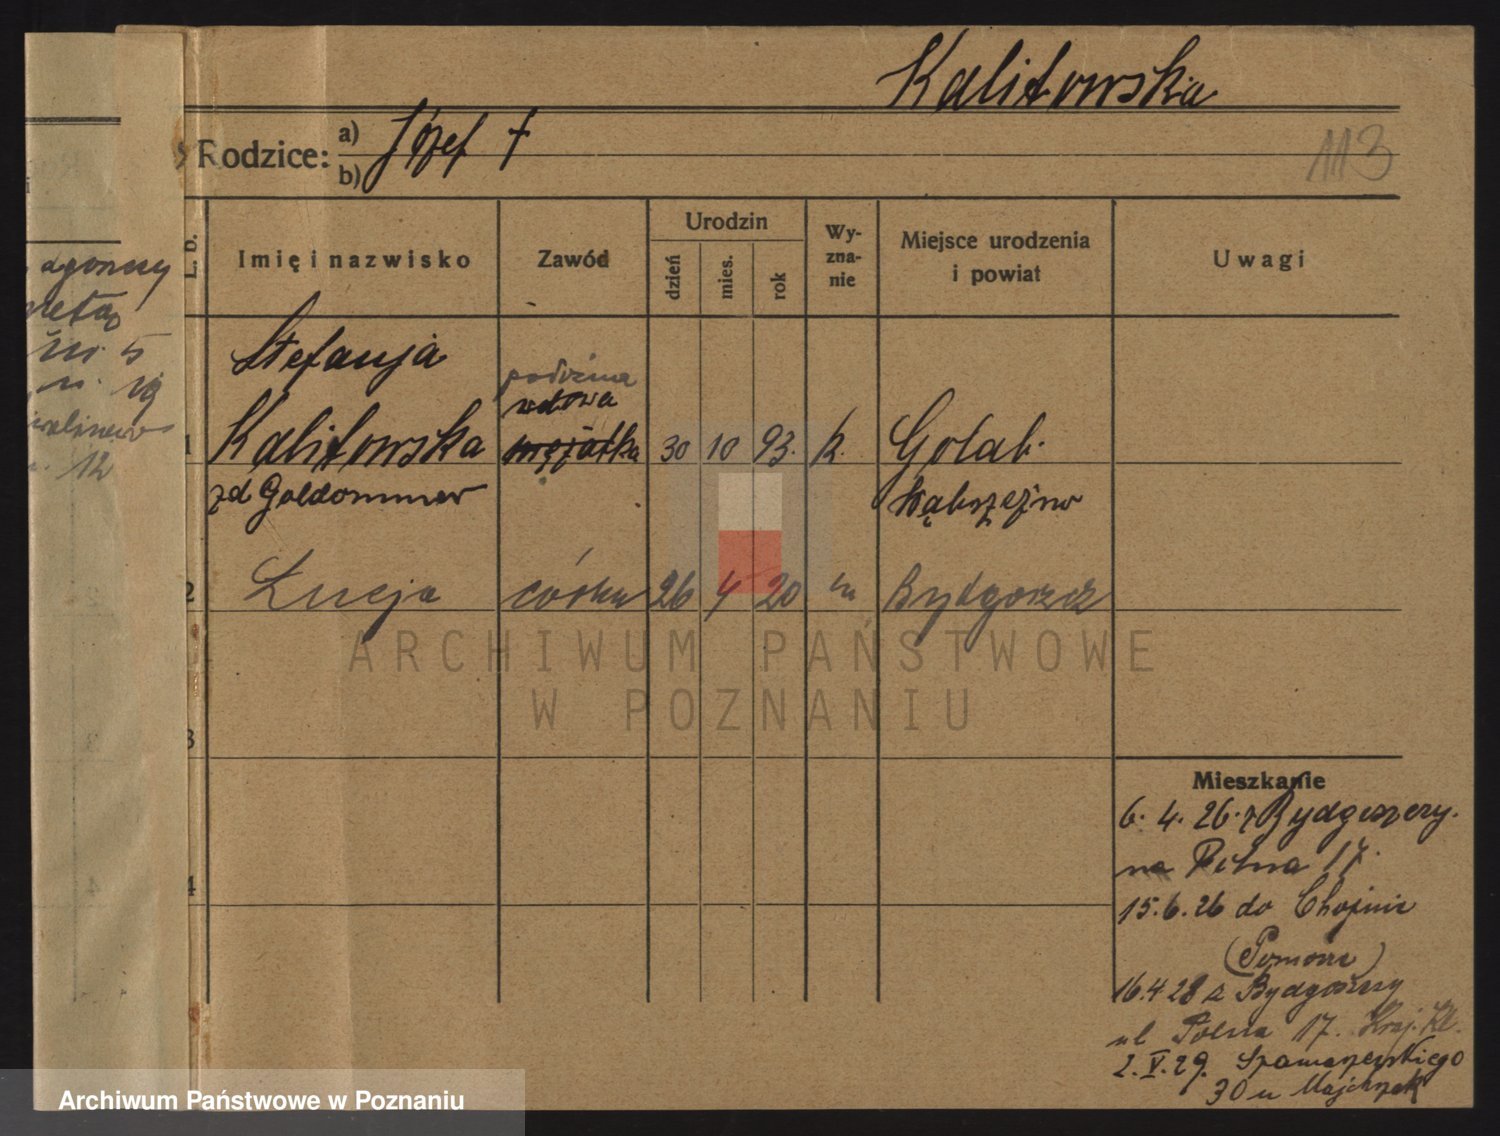 Kalitowska
Rodzice: a) Józef †
b)
113
L. b.
Imię i nazwisko
Zawód
Urodzin
dzień
mies.
rok
Wy-
zna-
nie
Miejsce urodzenia
i powiat
Uwagi
Stefanja
wdowa
1 Kalitowska mężatka 30 10 93. k. Golub.
zd Goldommer Wąbrzeźno
2 Łucja córka 26 4 20 " Bydgoszcz
3
4
Mieszkanie
6. 4. 26. z Bydgoszczy.
na Polna 17.
15.6.26 do Chojnic
(Pomorze)
16.4 28 z Bydgoszczy
ul Polna 17.
2. V. 29. Szamarzewskiego
30 u Majchrzak
5
19
12
ARCHIWUM PAŃSTWOWE
W POZNANIU
Archiwum Państwowe w Poznaniu